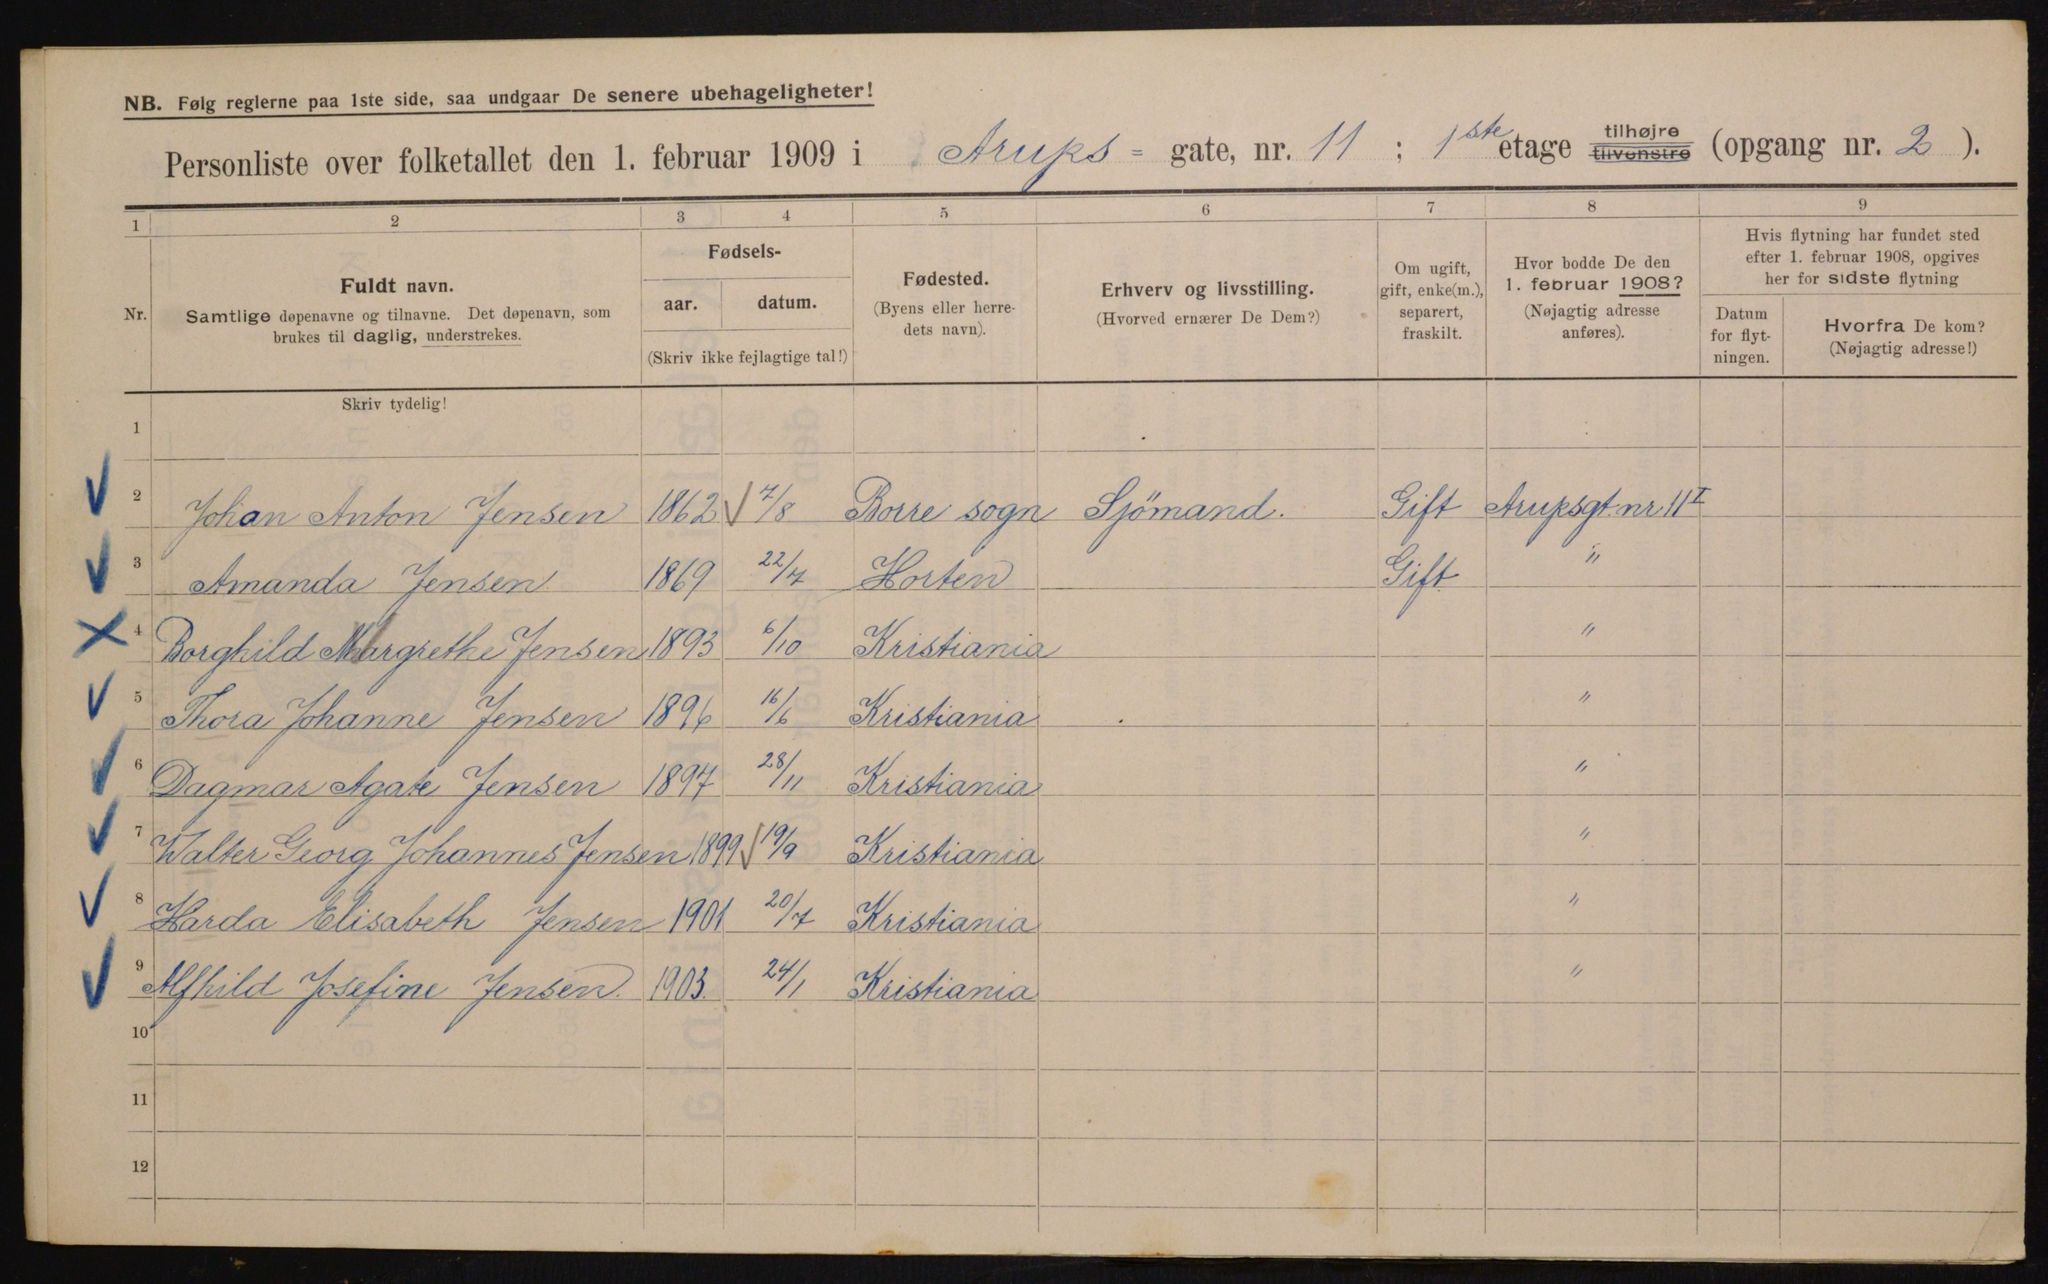 NB. Følg reglerne paa 1ste side, saa undgaar De senere ubehageligheter!
Personliste over folketallet den 1. februar 1909 i Arups = gate, nr. 11 ; 1ste etage tilhøjre tilvenstre (opgang nr. 2 ).
1 2 3 4 5 6 7 8 9
Nr.
Fuldt navn.
Samtlige døpenavne og tilnavne. Det døpenavn, som
brukes til daglig, understrekes.
Fødsels-
aar. datum.
(Skriv ikke fejlagtige tal!)
Fødested.
(Byens eller herre-
dets navn).
Erhverv og livsstilling.
(Hvorved ernærer De Dem?)
Om ugift,
gift, enke(m.),
separert,
fraskilt.
Hvor bodde De den
1. februar 1908?
(Nøjagtig adresse
anføres).
Hvis flytning har fundet sted
efter 1. februar 1908, opgives
her for sidste flytning
Datum
for flyt-
ningen.
Hvorfra De kom?
(Nøjagtig adresse!)
Skriv tydelig!
1
2 Johan Anton Jensen 1862 7/8 Borre sogn Sjömand. Gift Arupsgt. nr 11 I
3 Amanda Jensen 1869 22/7 Horten Gift "
4 Borghild Margrethe Jensen 1893 6/10 Kristiania "
5 Thora Johanne Jensen 1896 16/6 Kristiania "
6 Dagmar Agate Jensen 1897 28/11 Kristiania "
7 Walter Georg Johannes Jensen 1899 19/9 Kristiania "
8 Harda Elisabeth Jensen 1901 20/7 Kristiania "
9 Alfhild Josefine Jensen. 1903. 24/1 Kristiania "
10
11
12